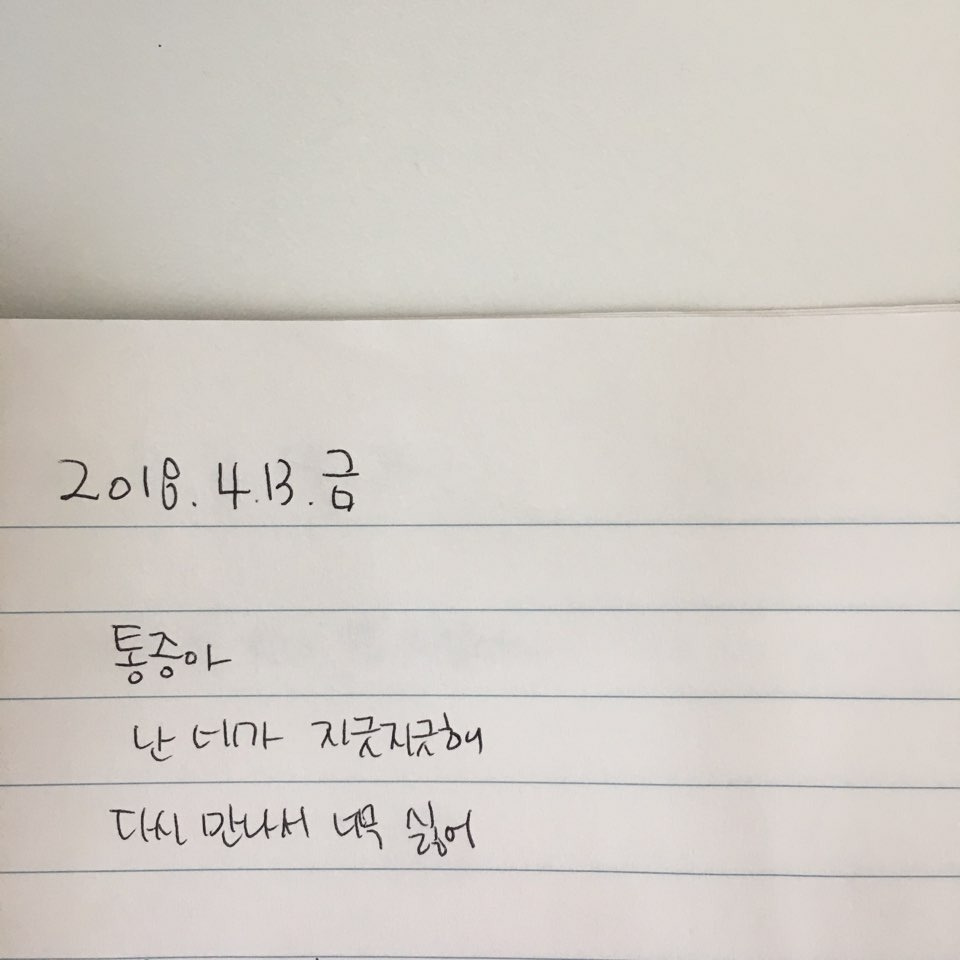 2018. 4.13.금
통증아
난 네가 지긋지긋해
다시 만나서 너무 싫어